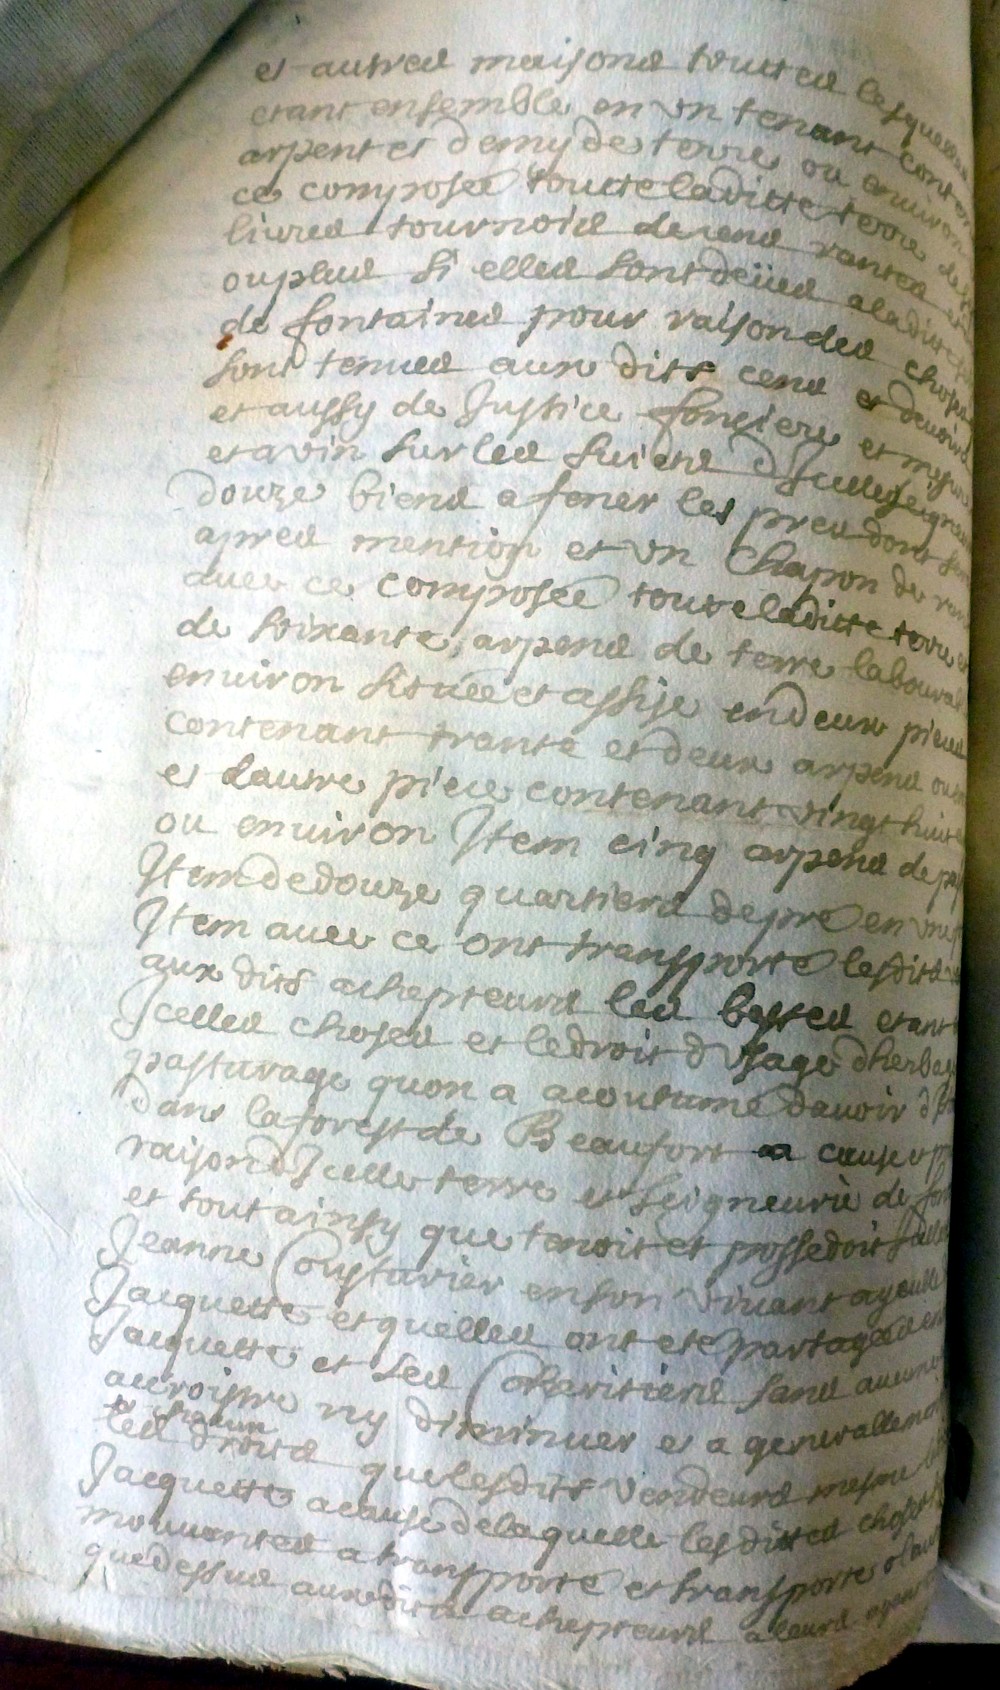 et autres maisons touttes lesquelles
etant ensemble en un tenant conten
arpent et demy de terre ou environ
ce composée toutte laditte terre de
livres tournois de cens rentes et
ou plus si elles sont deües a laditte
de fontaines pour raison des choses
sont tenues aux dits cens et devoirs
et aussy de Justice fonciere et mesure
et a vin sur les suiets d'Icelle seigneu
douze biens a fener les prez dont sera
apres mention et un Chapon de rente
avec ce composée toutte laditte terre
de soixante arpens de terre labourab
environ sistuée et assise en deux pieces
contenant trante et deux arpens ou
et l'autre piece contenant vingt huit
ou environ Item cinq arpens de pa
Item de douze quartiers de pré en une
Item avec ce ont transporté lesdits
aux dits achepteurs les bestes etant
Icelles choses et le droit d'usage d'herbage
pasturage qu'on a acoutumé d'avoir
dans la forest de Beaufort a cause et
raison d'Icelle terre et seigneurie de fon
et tout ainsy que tenoit et possedoit
Jeanne Coustavier en son vivant ayeulle
Jacquette et quelles ont eté partagées
Jacquette et ses Coheritiers sans aucune
accroistre ny diminuer et a generallement
les droits que lesdits vendeurs mesme
Jacquette a cause de laquelle lesdittes choses
mouvantes a transporté et transporte
que dessus auxdits achepteurs a leurs ayans